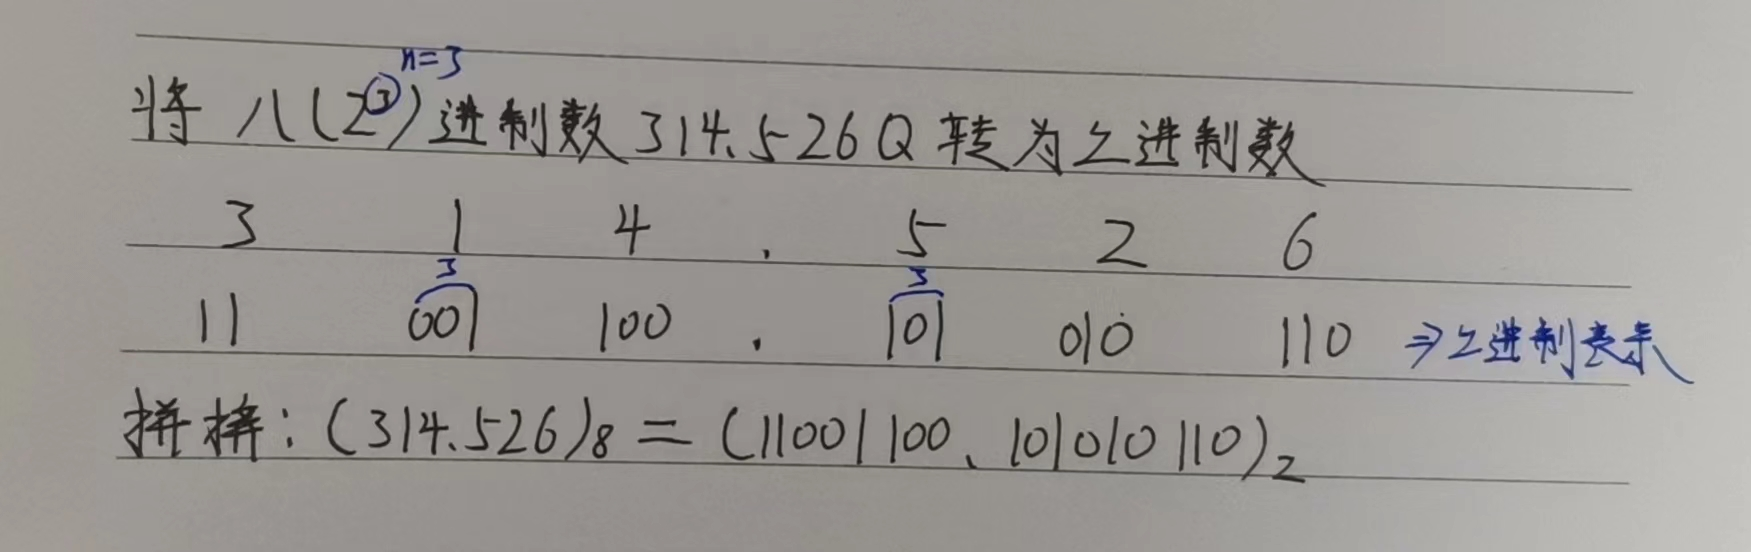 n=3
将 八(2³)进制数 314.526Q 转为二进制数
3 1 4 . 5 2 6
3 3
11 001 100 . 101 010 110 ⇒二进制表示
拼接:(314.526)₈ = (11001100.101010110)₂